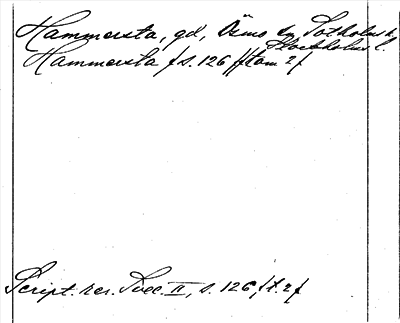 Hammersta, gd, Ösmo sn, Sotholms h,
Stockholms l.
Hammersta / s. 126 / (tom 2 /
Script. rer. Svec. II, s. 126, / t. 2 /